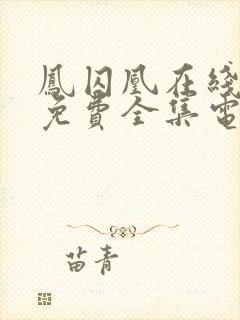 鳳囚凰在綫
免費全集電
苗青